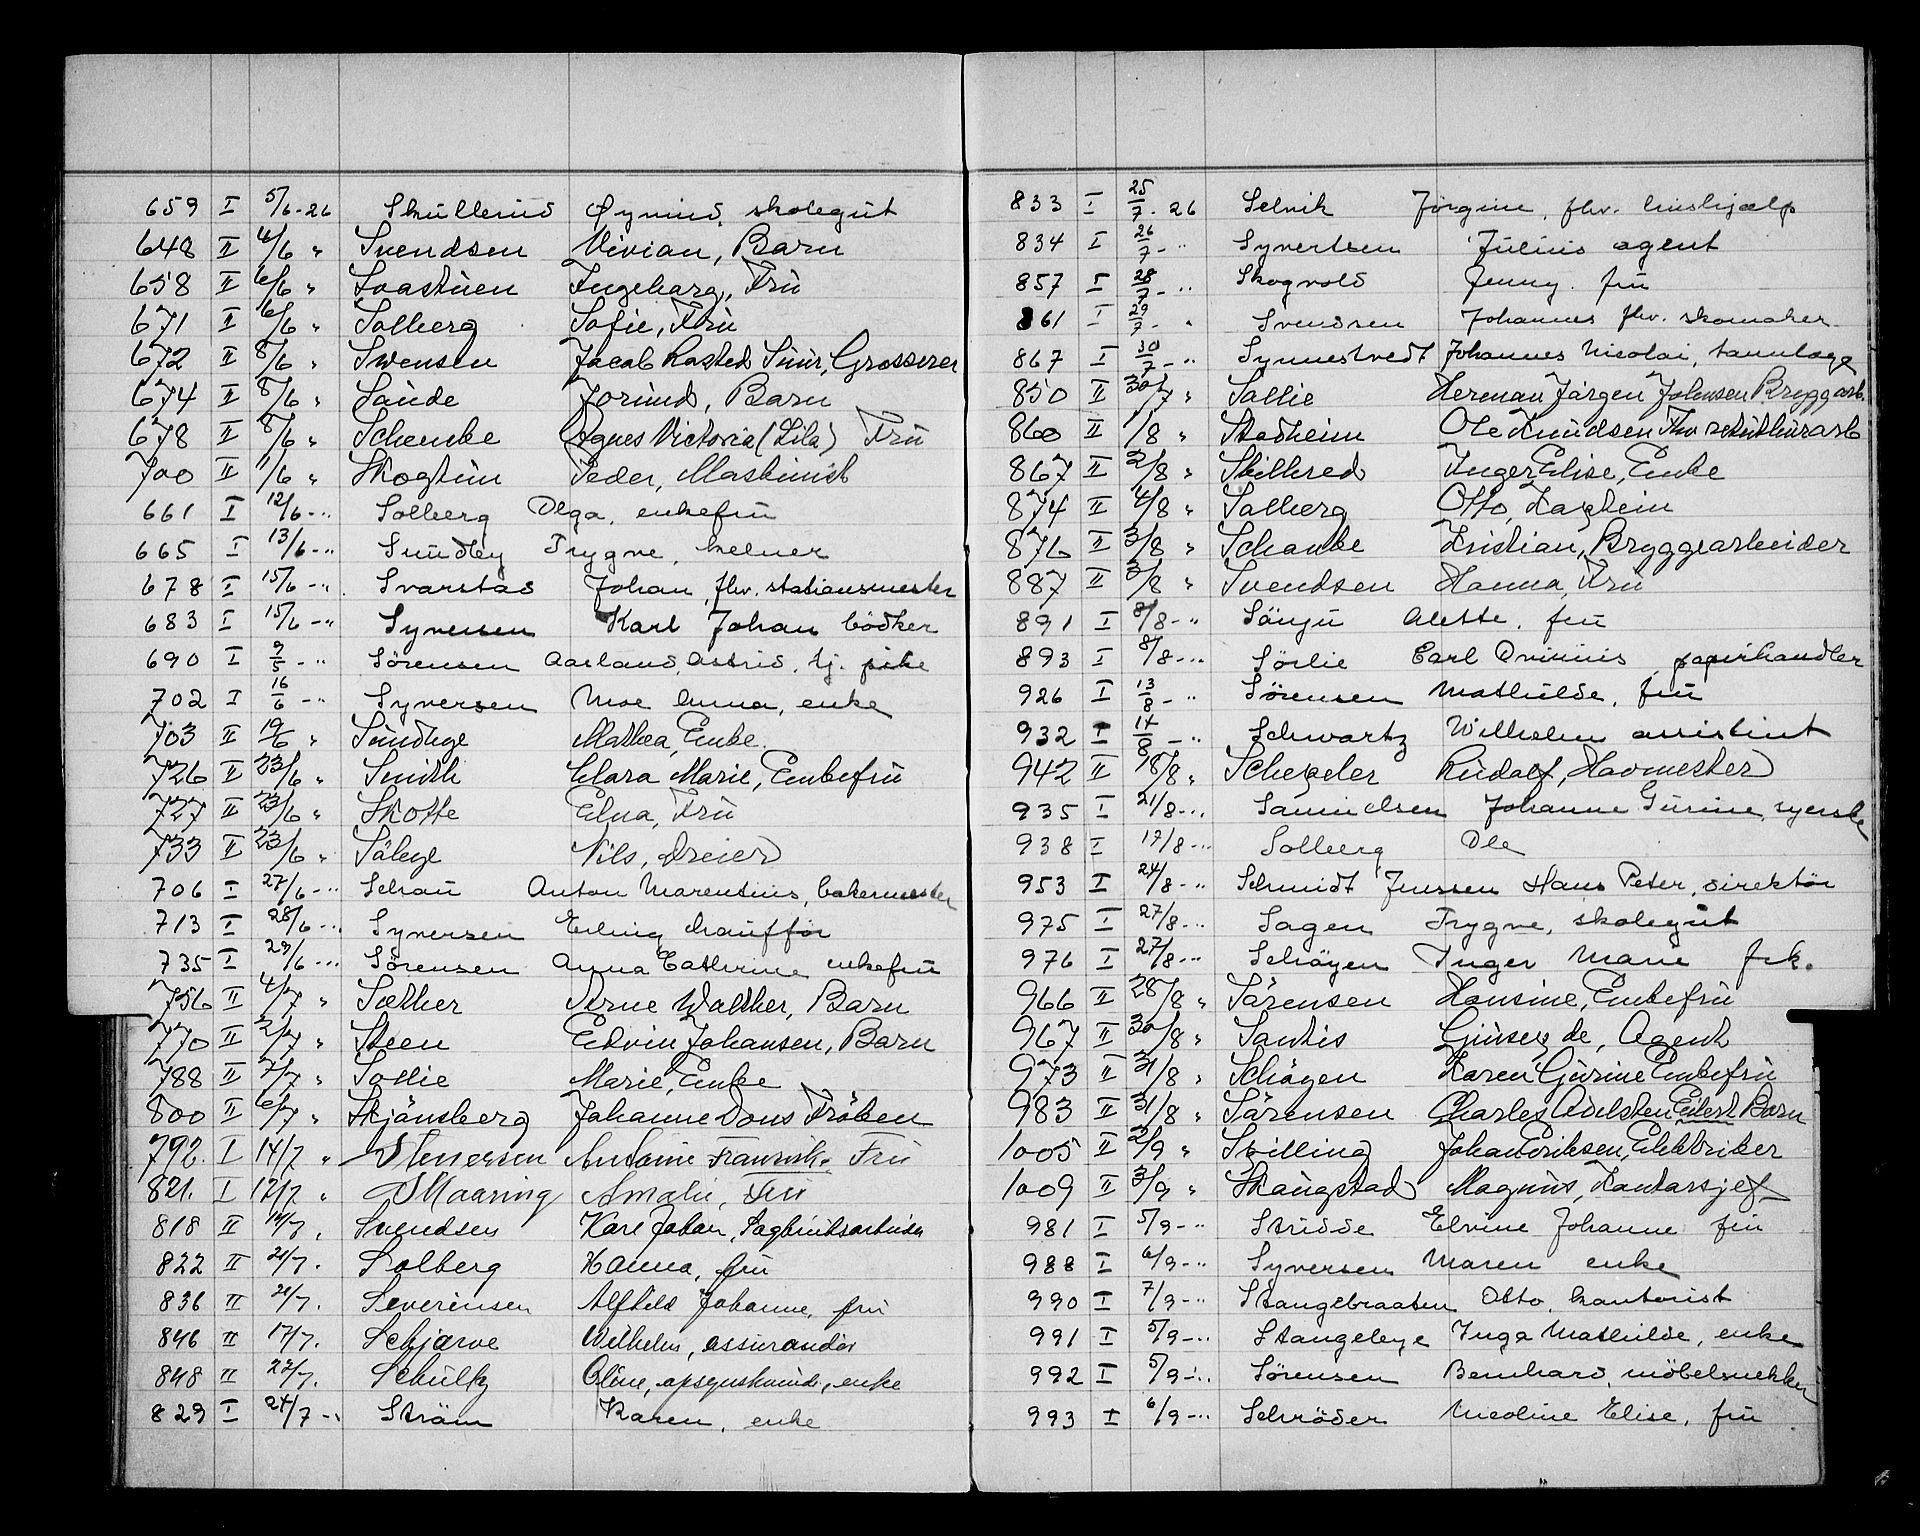 659 I 5/6-26 Skullerud Øyvind, skolegut
648 II 4/6 " Svendsen Vivian, Barn
658 II 6/6 " Svastuen Ingeborg, Fru
671 II 6/6 " Solberg Sofie, Fru
672 II 8/6 " Swensen Jacob Rasted Sinir, Grosserer
674 II 8/6 " Saude Jorunds, Barn
678 II 8/6 " Schencke Agnes Victoria (Lila) Fru
700 II 11/6 " Skogtun Peder, Maskinist
661 I 12/6-" Solberg Olga, enkefru
665 I 13/6-" Sundby Trygve, kelner
678 I 15/6-" Svarstad Johan, fhv. stationsmester
683 I 15/6-" Syversen Karl Johan bödker
690 I 9/5-" Sörensen Aarland, Astrid, tj. pike
702 I 16/6-" Syversen Moe Anna, enke
703 II 19/6 " Sundbye Mathea, Enke.
726 II 23/6 " Smith Clara Marie, Enkefru
727 II 23/6 " Skotte Elna, Fru
733 II 23/6 " Säbye Nils, Dreier
706 I 27/6-" Schau Anton Marentius, bakermester
713 I 28/6-" Syversen Erling chaufför
735 I 29/6-" Sörensen Anna Cathrine enkefru
756 II 4/7 " Sæther Arne Walther, Barn
770 II 2/7 " Steen Edvin Johansen, Barn
788 II 7/7 " Sollie Marie, Enke
800 II 6/7 " Skjänsberg Johanne Dons Fröken
792. I 14/7 " Stenersen Antonie Franziska Fru
821. I 17/7 " Skaaring Amalie, Fru
818 II 14/7. Svendsen Karl Johan, Sagbruksarbeider
822 II 21/7. Solberg Hanna, fru
836 II 21/7. Severinsen Alfhild Johanne, fru
846 II 17/7. Schjarve Wilhelm, assurandör
848 II 22/7. Schultz Oline, opsynskvinde, enke
829 I 24/7-" Ström Karen, enke
833 I 25/7-26 Selvik Jörgine, fhv. hushjælp
834 I 26/7-" Syvertsen Julius agent
857 I 28/7-" Skogvold Jenny, fru
861 I 29/7-" Svendsen Johannes fhv. skomaker.
867 I 30/7-" Synnestvedt Johannes Nicolai, tannlæge
850 II 30/7 " Sollie Herman Jörgen Johnsen Bryggarb.
860 II 1/8 " Stadheim Ole Knudsen Fhv
867 II 2/8 " Skillred Inger Elise, Enke
874 II 4/8 " Solberg Otto, Kaptein
876 II 3/8 " Schanke Kristian, Bryggearbeider
887 II 3/8 " Svendsen Hanna, Fru
891 I 8/8-" Sönju Alette, fru
893 I 8/8-" Sörlie Carl Qvinius papirhandler
926 I 13/8-" Sörensen Mathilde, fru
932 I 14/8-" Schwartz Wilhelm assistent
942 II 18/8 " Schepeler Rudolf, Havnester
935 I 21/8-" Samuelsen Johanne Gurine, syerske
938 I 17/8-" Solberg Ole
953 I 24/8-" Schmidt Jenssen Hans Peter, direktör
975 I 27/8-" Sagen Trygve, skolegut
976 I 27/8-" Schöyen Inger Marie frk.
966 II 28/8 " Sörensen Hansine, Enkefru
967 II 30/8 " Santis Ginsep de, Agent
973 II 31/8 " Schöyen Karen Gurine Enkefru
983 II 31/8 " Sörensen Charles Adelsten Eilert Barn
1005 II 2/9 " Svilling Johan Eriksen, Elektriker
1009 II 3/9 " Skaugstad Magnus, Kontorsjef
981 I 5/9-" Stridde Elvine Johanne fru
988 I 6/9-" Syversen Maren enke
990 I 7/9-" Stangebraaten Otto, kontorist
991 I 5/9-" Stangebye Inga Mathilde, enke
992 I 5/9-" Sörensen Bernhard, möbelsnekker
993 I 6/9-" Schröder Nicoline Elise, fru